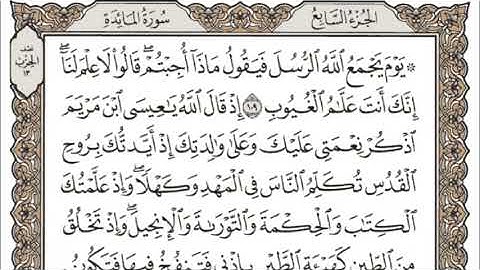 الجزء السابع
سورة المائدة
۞ يَوْمَ يَجْمَعُ ٱللَّهُ ٱلرُّسُلَ فَيَقُولُ مَاذَآ أُجِبْتُمْۖ قَالُوا۟ لَا عِلْمَ لَنَآۖ
إِنَّكَ أَنتَ عَلَّٰمُ ٱلْغُيُوبِ ١٠٩ إِذْ قَالَ ٱللَّهُ يَٰعِيسَى ٱبْنَ مَرْيَمَ
ٱذْكُرْ نِعْمَتِى عَلَيْكَ وَعَلَىٰ وَٰلِدَتِكَ إِذْ أَيَّدتُّكَ بِرُوحِ
ٱلْقُدُسِ تُكَلِّمُ ٱلنَّاسَ فِى ٱلْمَهْدِ وَكَهْلًاۖ وَإِذْ عَلَّمْتُكَ
ٱلْكِتَٰبَ وَٱلْحِكْمَةَ وَٱلتَّوْرَىٰةَ وَٱلْإِنجِيلَۖ وَإِذْ تَخْلُقُ
مِنَ ٱلطِّينِ كَهَيْـَٔةِ ٱلطَّيْرِ بِإِذْنِى فَتَنفُخُ فِيهَا فَتَكُونُ
الحزب
١٣